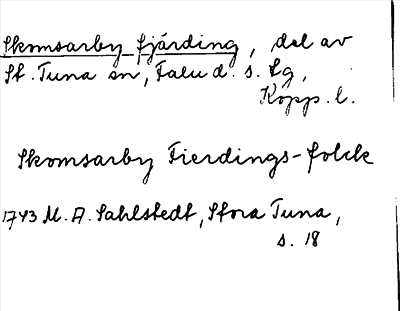 Skomsarby fjärding, del av
St. Tuna sn, Falu d. s. lg,
Kopp. l.
Skomsarby Fierdings-folck
1743 M. A. Sahlstedt, Stora Tuna,
s. 18